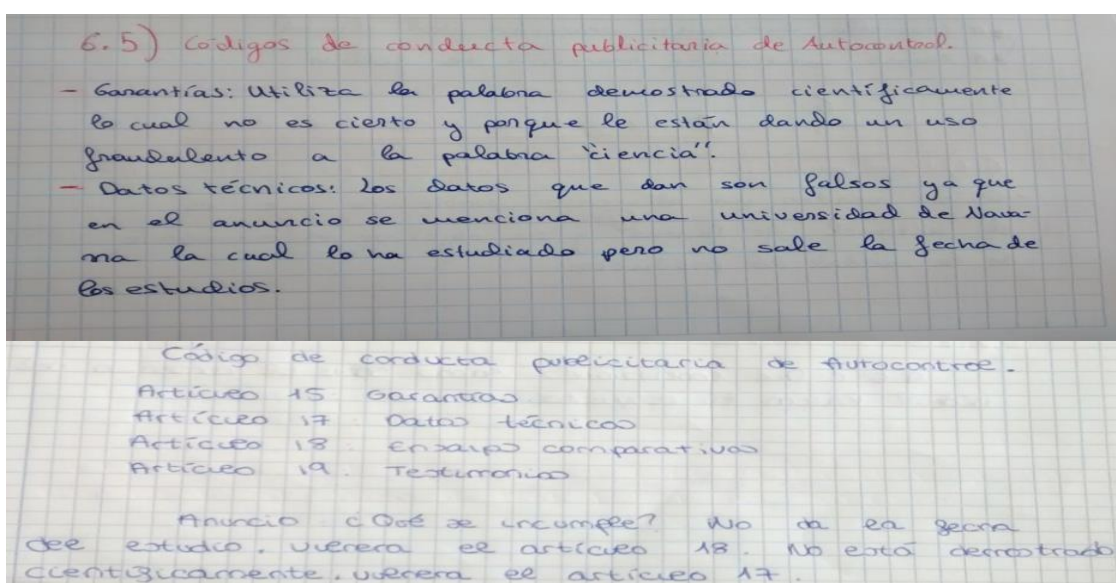 6.5) Códigos de conducta publicitaria de Autocontrol.
- Garantías: Utiliza la palabra demostrado científicamente
lo cual no es cierto y porque le están dando un uso
fraudulento a la palabra "ciencia".
- Datos técnicos: Los datos que dan son falsos ya que
en el anuncio se menciona una universidad de Nava-
rra la cual lo ha estudiado pero no sale la fecha de
los estudios.
Código de conducta publicitaria de Autocontrol.
Artículo 15 Garantías
Artículo 17 Datos técnicos
Artículo 18. Ensaios comparativos
Artículo 19. Testimonios
Anuncio ¿Qué se incumple? No da la fecha
del estudio. Vulnera el artículo 18. No está demostrado
científicamente. Vulnera el artículo 17.